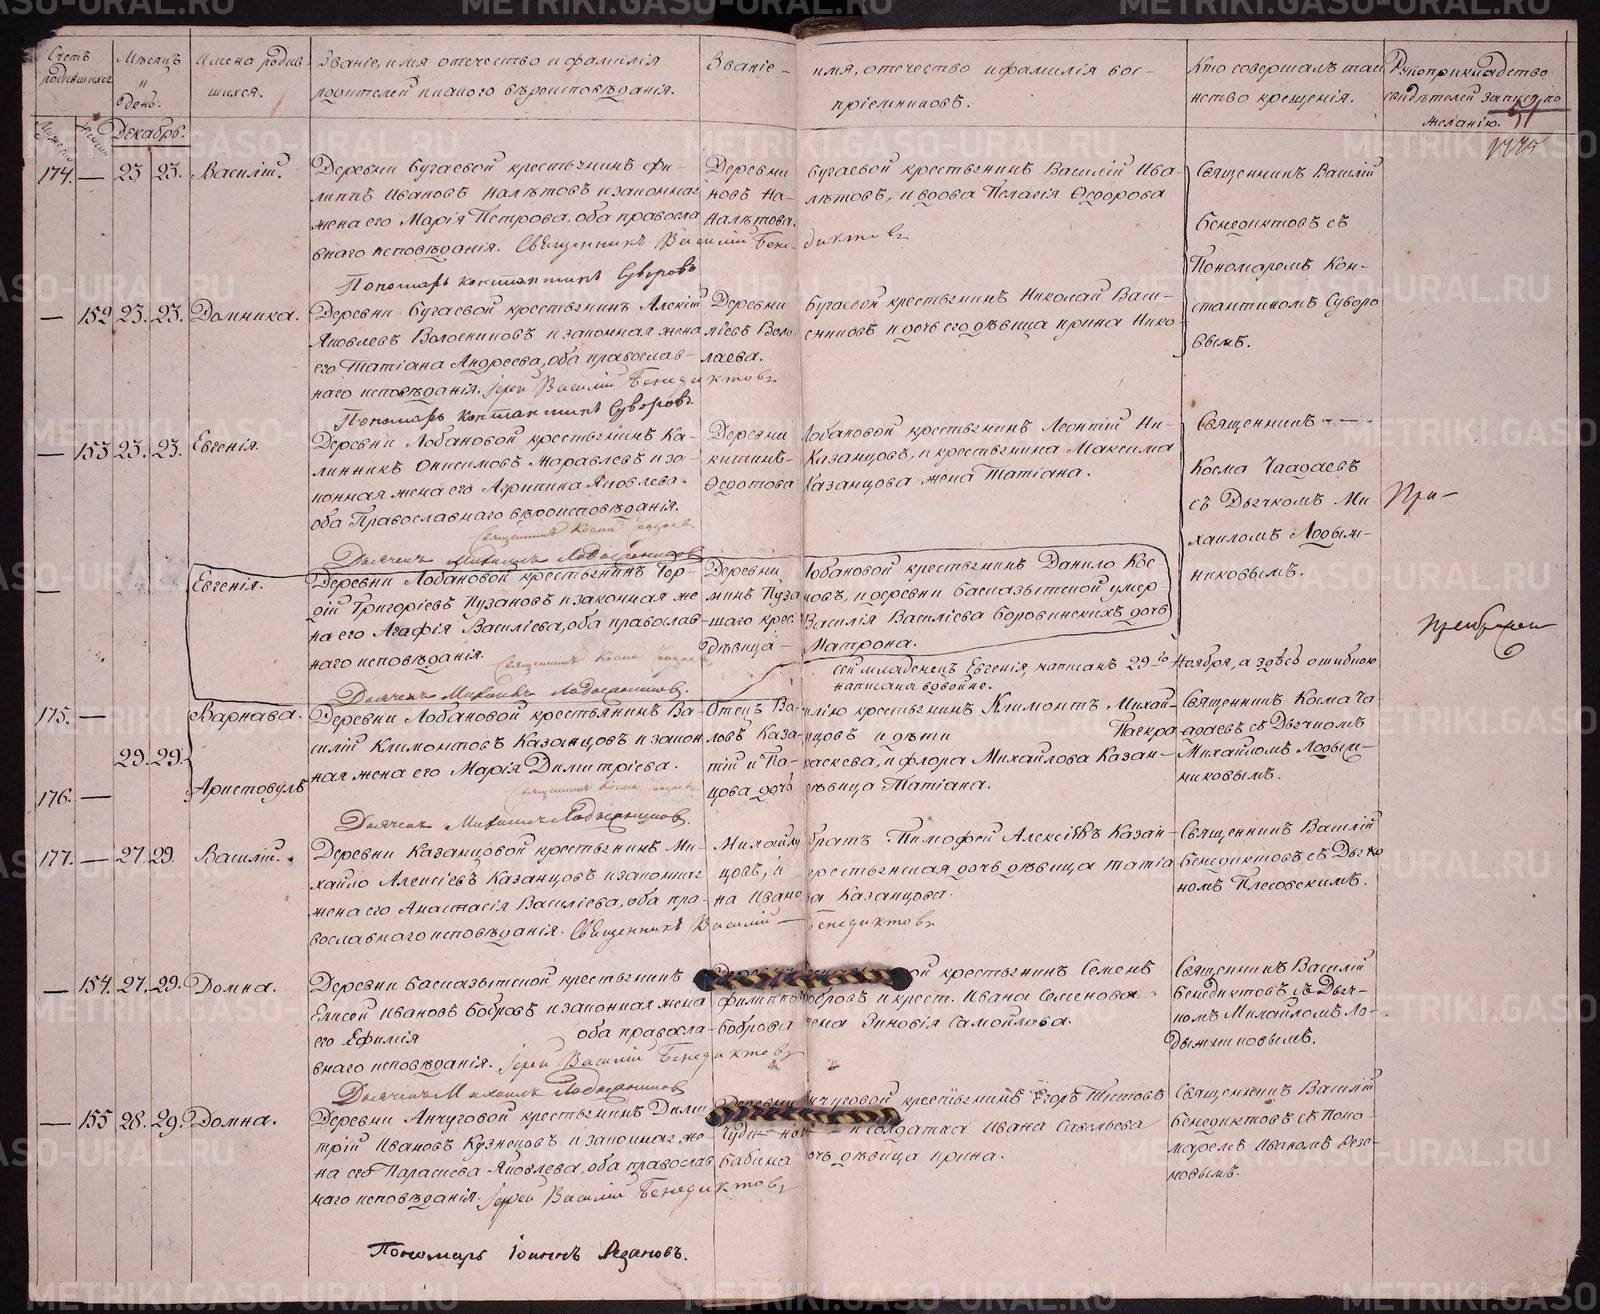 Счетъ родившихся
Мѣсяцъ и день.
Имена родившихся.
Званіе, имя отечество и фамилія
родителей и какого вѣроисповѣданія.
Званіе, имя, отчество и фамилія вос-
пріемниковъ.
Кто совершалъ таи
нство крещенія.
Рукоприкладство
свидѣтелей записи по
желанію.
Декабрь.
51
174. — 23 23. Василій.
Деревни Бугаевой крестьянинъ Фи-
липпъ Ивановъ Налѣтовъ и законная
жена его Марія Петрова, оба правосла
внаго исповѣданія. Священникъ Василій Бенедиктовъ
Пономарь Константинъ Суворовъ
Деревни Бугаевой крестьянинъ Василій Ива-
новъ Налѣтовъ, и вдова Пелагія Ѳедорова
Налѣтова.
Священникъ Василій
Бенедиктовъ съ
Пономаремъ Кон-
стантиномъ Суворо
вымъ.
— 152 23. 23. Домника.
Деревни Бугаевой крестьянинъ Алексій
Яковлевъ Волосниковъ и законная жена
его Татіана Андреева, оба православ-
наго исповѣданія. Іерей Василій Бенедиктовъ
Пономарь Константинъ Суворовъ.
Деревни Бугаевой крестьянинъ Николай Васи-
ліевъ Волосниковъ и дочь его дѣвица Ирина Нико-
лаева.
— 153 23. 23. Евгенія.
Деревни Лобановой крестьянинъ Ка-
линникъ Онисимовъ Жаравлевъ и за-
конная жена его Агрипина Яковлева.
оба Православнаго вѣроисповѣданія.
Священникъ Косма Чаадаевъ
Дьячекъ Михаилъ Ладыжниковъ
Деревни Лобановой крестьянинъ Леонтій Ни-
китинъ Казанцовъ, и крестьянина Максима
Ѳедотова Казанцова жена Татіана.
Священникъ —
Косма Чаадаевъ
съ Дьячкомъ Ми-
хаиломъ Ладыж-
никовымъ.
При-
— Евгенія.
Деревни Лобановой крестьянинъ Гор-
дій Григоріевъ Пузановъ и законная же
на его Агафія Василіева, оба православ
наго исповѣданія.
Священникъ Косма Чаадаевъ
Дьячекъ Михаилъ Ладыжниковъ.
Деревни Лобановой крестьянинъ Данило Кос-
минъ Пузановъ, и деревни Басказыкской умер
шаго крес. Василія Василіева Боровинскихъ дочь
дѣвица — Матрона.
сей младенецъ Евгенія, написанъ 29го Ноября, а здѣсь ошибкою
написана вдвойне.
175. — Варнава.
29. 29.
176. — Аристовулъ
Деревни Лобановой крестьянинъ Ва-
силій Климонтовъ Казанцовъ и закон
ная жена его Марія Димитріева.
Священникъ Косма Чаадаевъ
Дьячекъ Михаилъ Ладыжниковъ.
Отецъ Василію крестьянинъ Климонтъ Михай-
ловъ Казанцовъ и дѣти
цова дочь дѣвица Татіана.
Священникъ Косма Ча-
адаевъ съ Дьячкомъ
Михаиломъ Ладыж-
никовымъ.
177. — 27. 29. Василій.
Деревни Казанцовой крестьянинъ Ми-
хайло Алексіевъ Казанцовъ и законная
жена его Анастасія Василіева, оба пра-
вославнаго исповѣданія. Священникъ Василій — Бенедиктовъ
Михайлу братъ Тимофей Алексіевъ Казан-
цовъ, и крестьянская дочь дѣвица Татіа
на Иванова Казанцова.
Священникъ Василій
Бенедиктовъ съ Дьячко
номъ Плесовскимъ.
— 154. 27. 29. Домна.
Деревни Басказыкской крестьянинъ
Елисей Ивановъ Бобровъ и законная жена
его Ефимія оба правосла-
внаго исповѣданія. Іерей Василій Бенедиктовъ
Дьячекъ Михаилъ Ладыжниковъ
крестьянинъ Семенъ
Филиппо Бобровъ и крест. Ивана Семенова
Боброва жена Зиновія Самойлова.
Священникъ Василій
Бенедиктовъ съ Дьяч-
комъ Михайломъ Ла-
дыжниковымъ.
— 155 28. 29. Домна.
Деревни Анчуговой крестьянинъ Дими
трій Ивановъ Кузнецовъ и законная же-
на его Параскева Яковлева, оба православ
наго исповѣданія. Іерей Василій Бенедиктовъ
Пономарь Іоаннъ Рѣзановъ.
Деревни Анчуговой крестьянинъ Егоръ Титовъ
и солдатка Ивана Савельева
Бабина дочь дѣвица Ирина.
Священникъ Василій
Бенедиктовъ съ Поно-
маремъ Иваномъ Рѣза-
новымъ.
METRIKI.GASO-URAL.RU